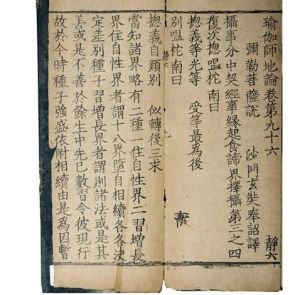 瑜伽師地論卷第九十六
彌勒菩薩說 沙門玄奘奉詔譯 靜六
攝事分中契經事緣起食諦界擇攝第三之四
復次揔嗢柁南曰
揔義等光等 受等最為後
別嗢柁南曰
揔義自類別 似轉後三求
當知諸界略有二種一住自性界二習增長
界住自性界者謂十八界墮自相續各各決
定差別種子習增長界者謂則諸法或是其
善或是不善於餘生中先已數習令彼現行
故於今時種子強盛依附相續由是為因暫